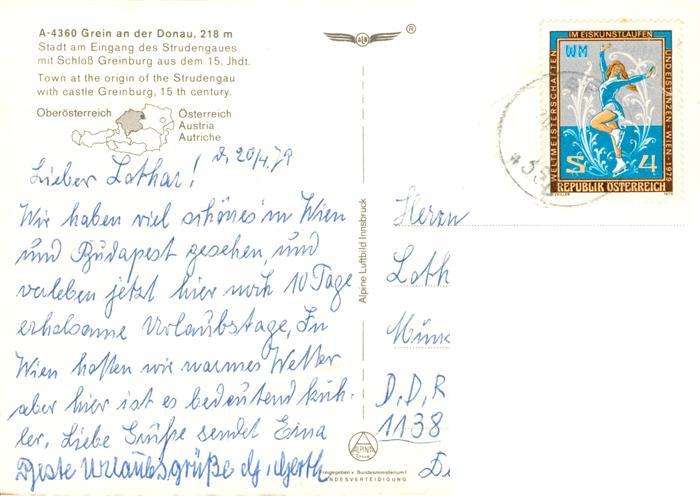 A-4360 Grein an der Donau, 218 m
Stadt am Eingang des Strudengaues
mit Schloß Greinburg aus dem 15. Jhdt.
Town at the origin of the Strudengau
with castle Greinburg, 15 th century.
Oberösterreich
Österreich
Austria
Autriche
®
d. 20/4.79
Lieber Lothar!
Wir haben viel schönes in Wien
und Budapest gesehen, und
verleben jetzt hier noch 10 Tage
erholsame Urlaubstage, In
Wien hatten wir warmes Wetter
aber hier ist es bedeutend küh-
ler, Liebe Grüße sendet Erna
Beste Urlaubsgrüße
Alpine Luftbild Innsbruck
ALPINE
freigegeben v. Bundesministerium f.
LANDESVERTEIDIGUNG
WELTMEISTERSCHAFTEN
IM EISKUNSTLAUFEN
UND EISTANZEN - WIEN - 1979
WM
S 4
REPUBLIK ÖSTERREICH
Herrn
Loth
D.D.R
1138